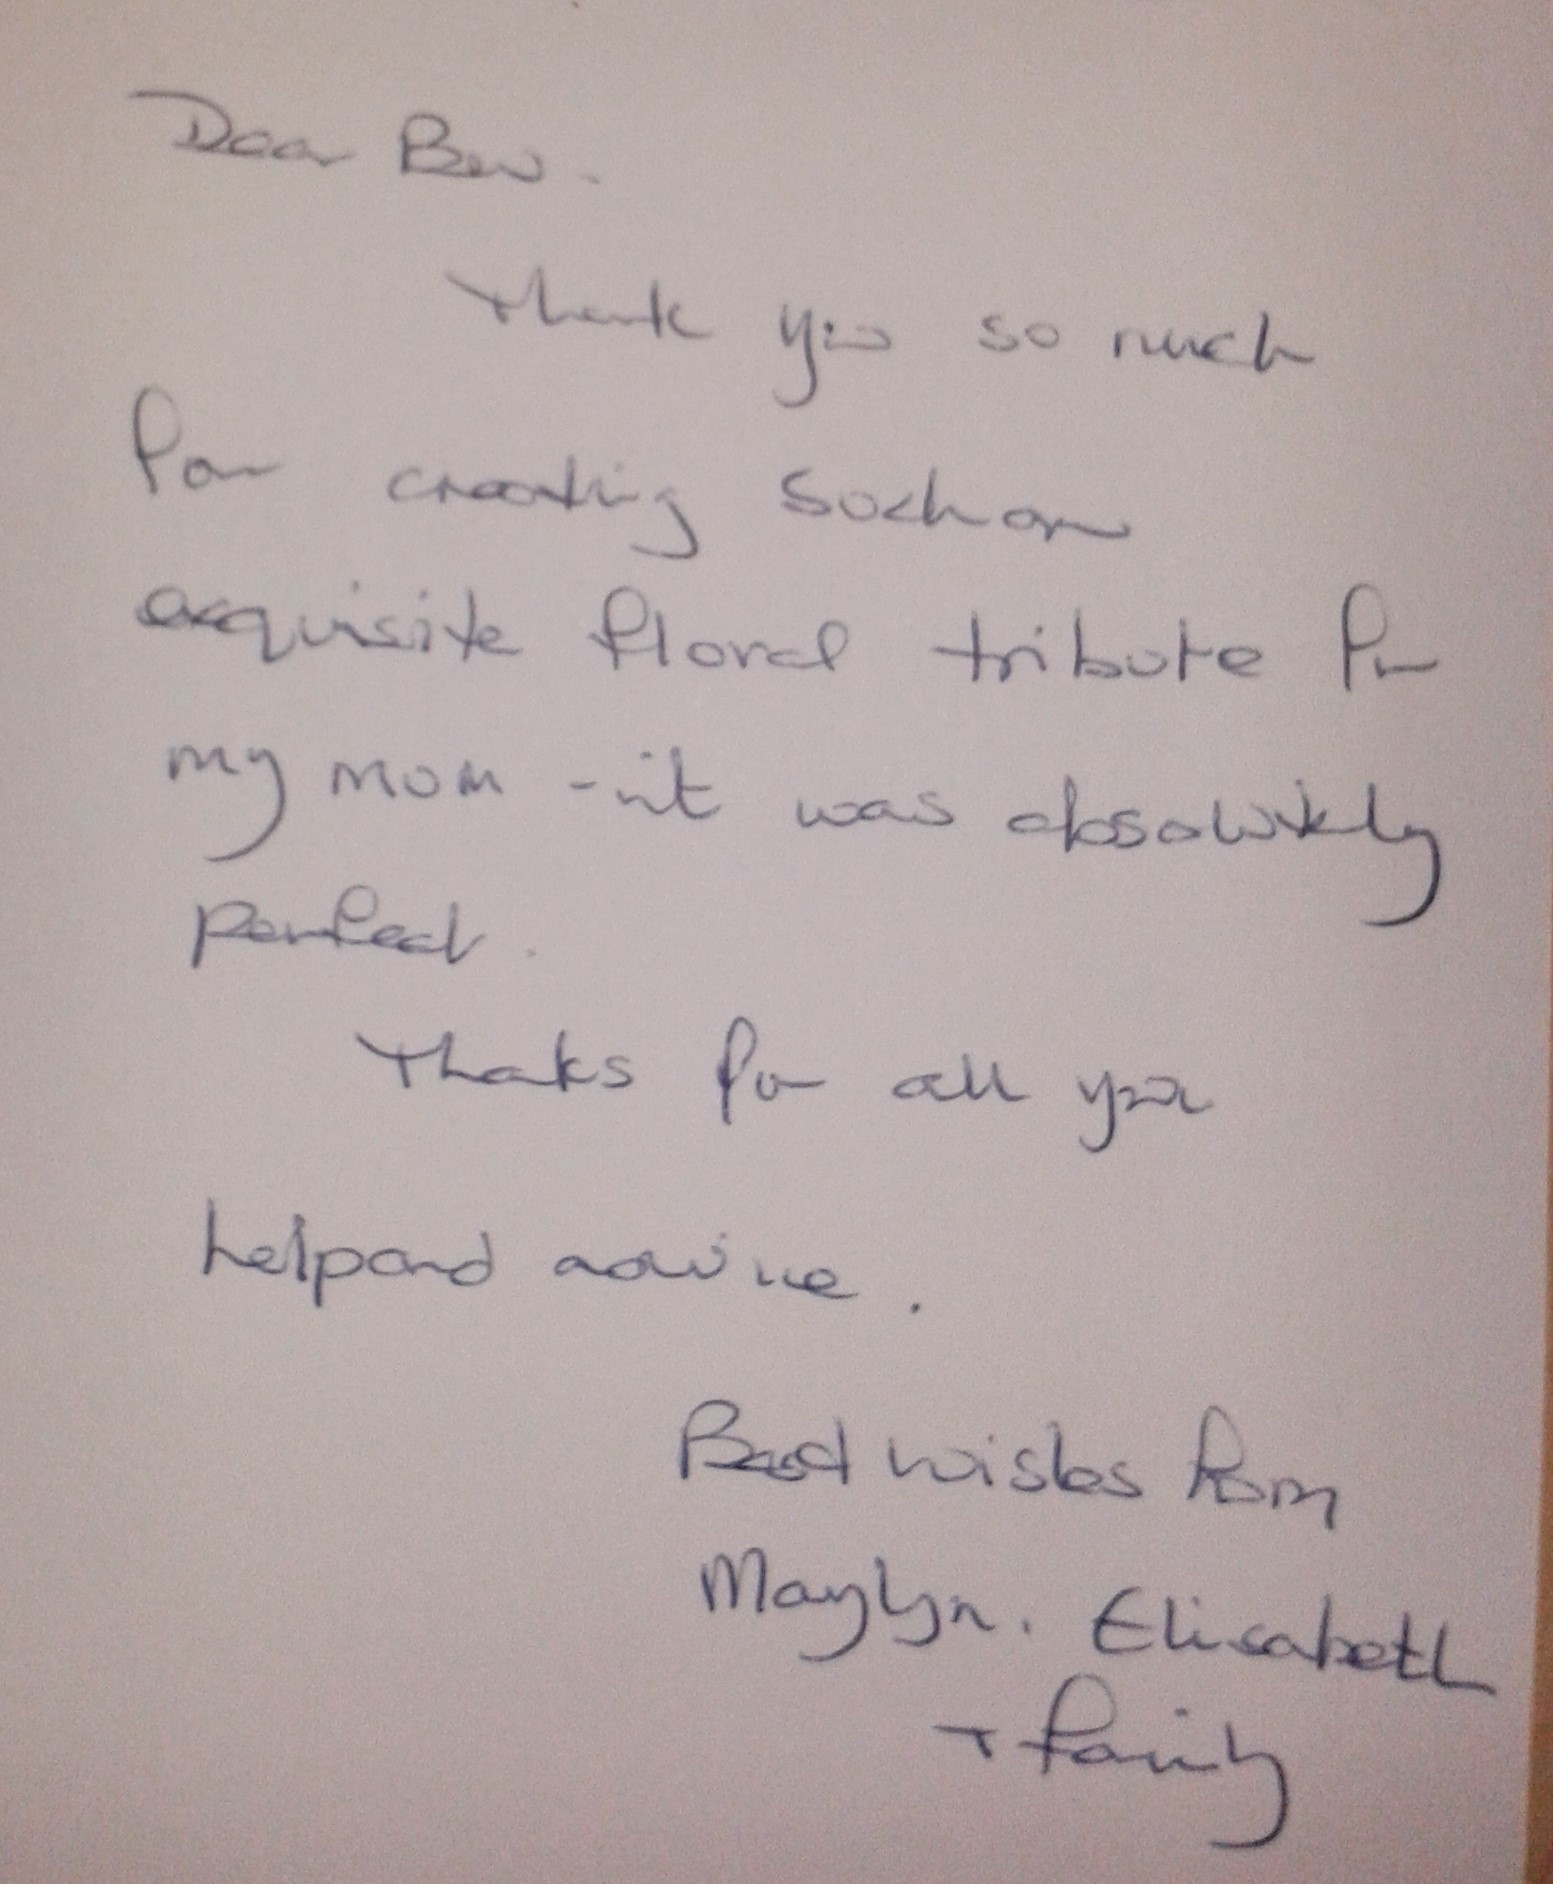 Dear Bev.
Thank you so much
for creating such an
exquisite floral tribute for
my mom - it was absolutely
perfect.
Thanks for all your
help and advice.
Best wishes from
Maylyn. Elisabeth
+ family